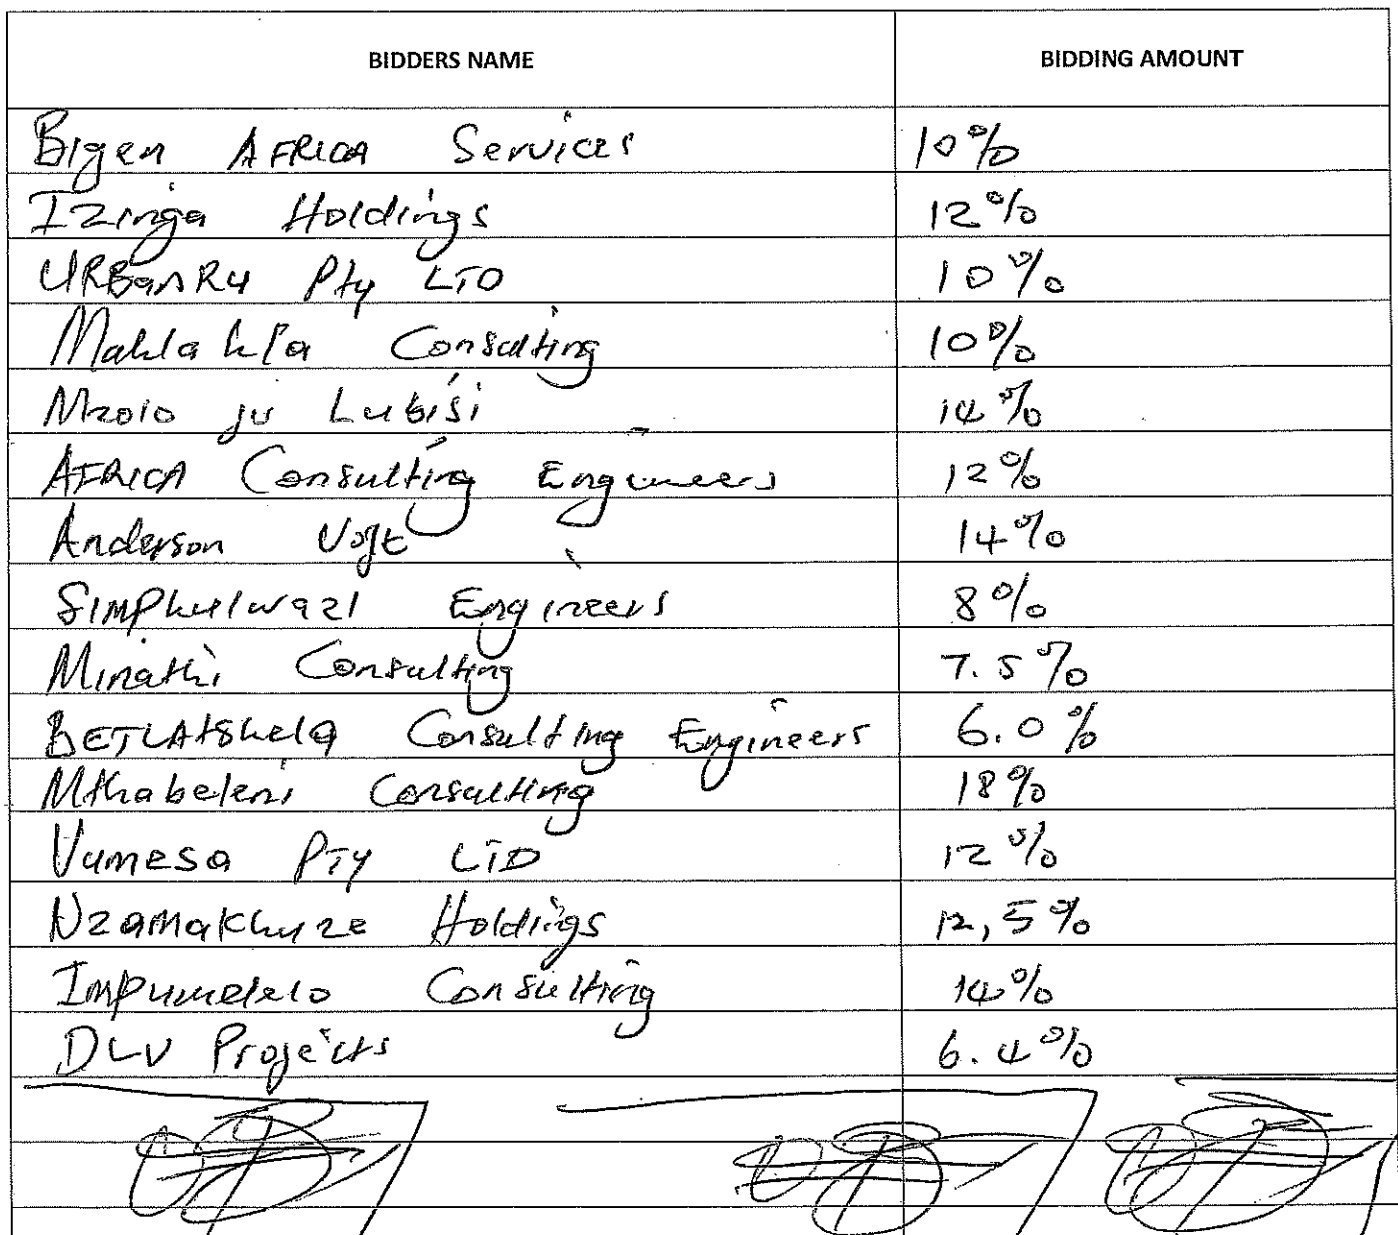 BIDDERS NAME BIDDING AMOUNT
Bigen AFRICA Services 10%
Izinga Holdings 12%
URBanRu Pty LTD 10%
Mahlahla Consulting 10%
Mzolo ju Lubisi 14%
AFRICA Consulting Engineers 12%
Anderson Vogt 14%
SIMPhulwazI Engineers 8%
Minathi Consulting 7.5%
BETLAtshela Consulting Engineers 6.0%
Mthabeleni Consulting 18%
Vumesa PTy LTD 12%
Nzamakhuze Holdings 12,5%
Impumelelo Consulting 14%
DLV Projects 6.4%